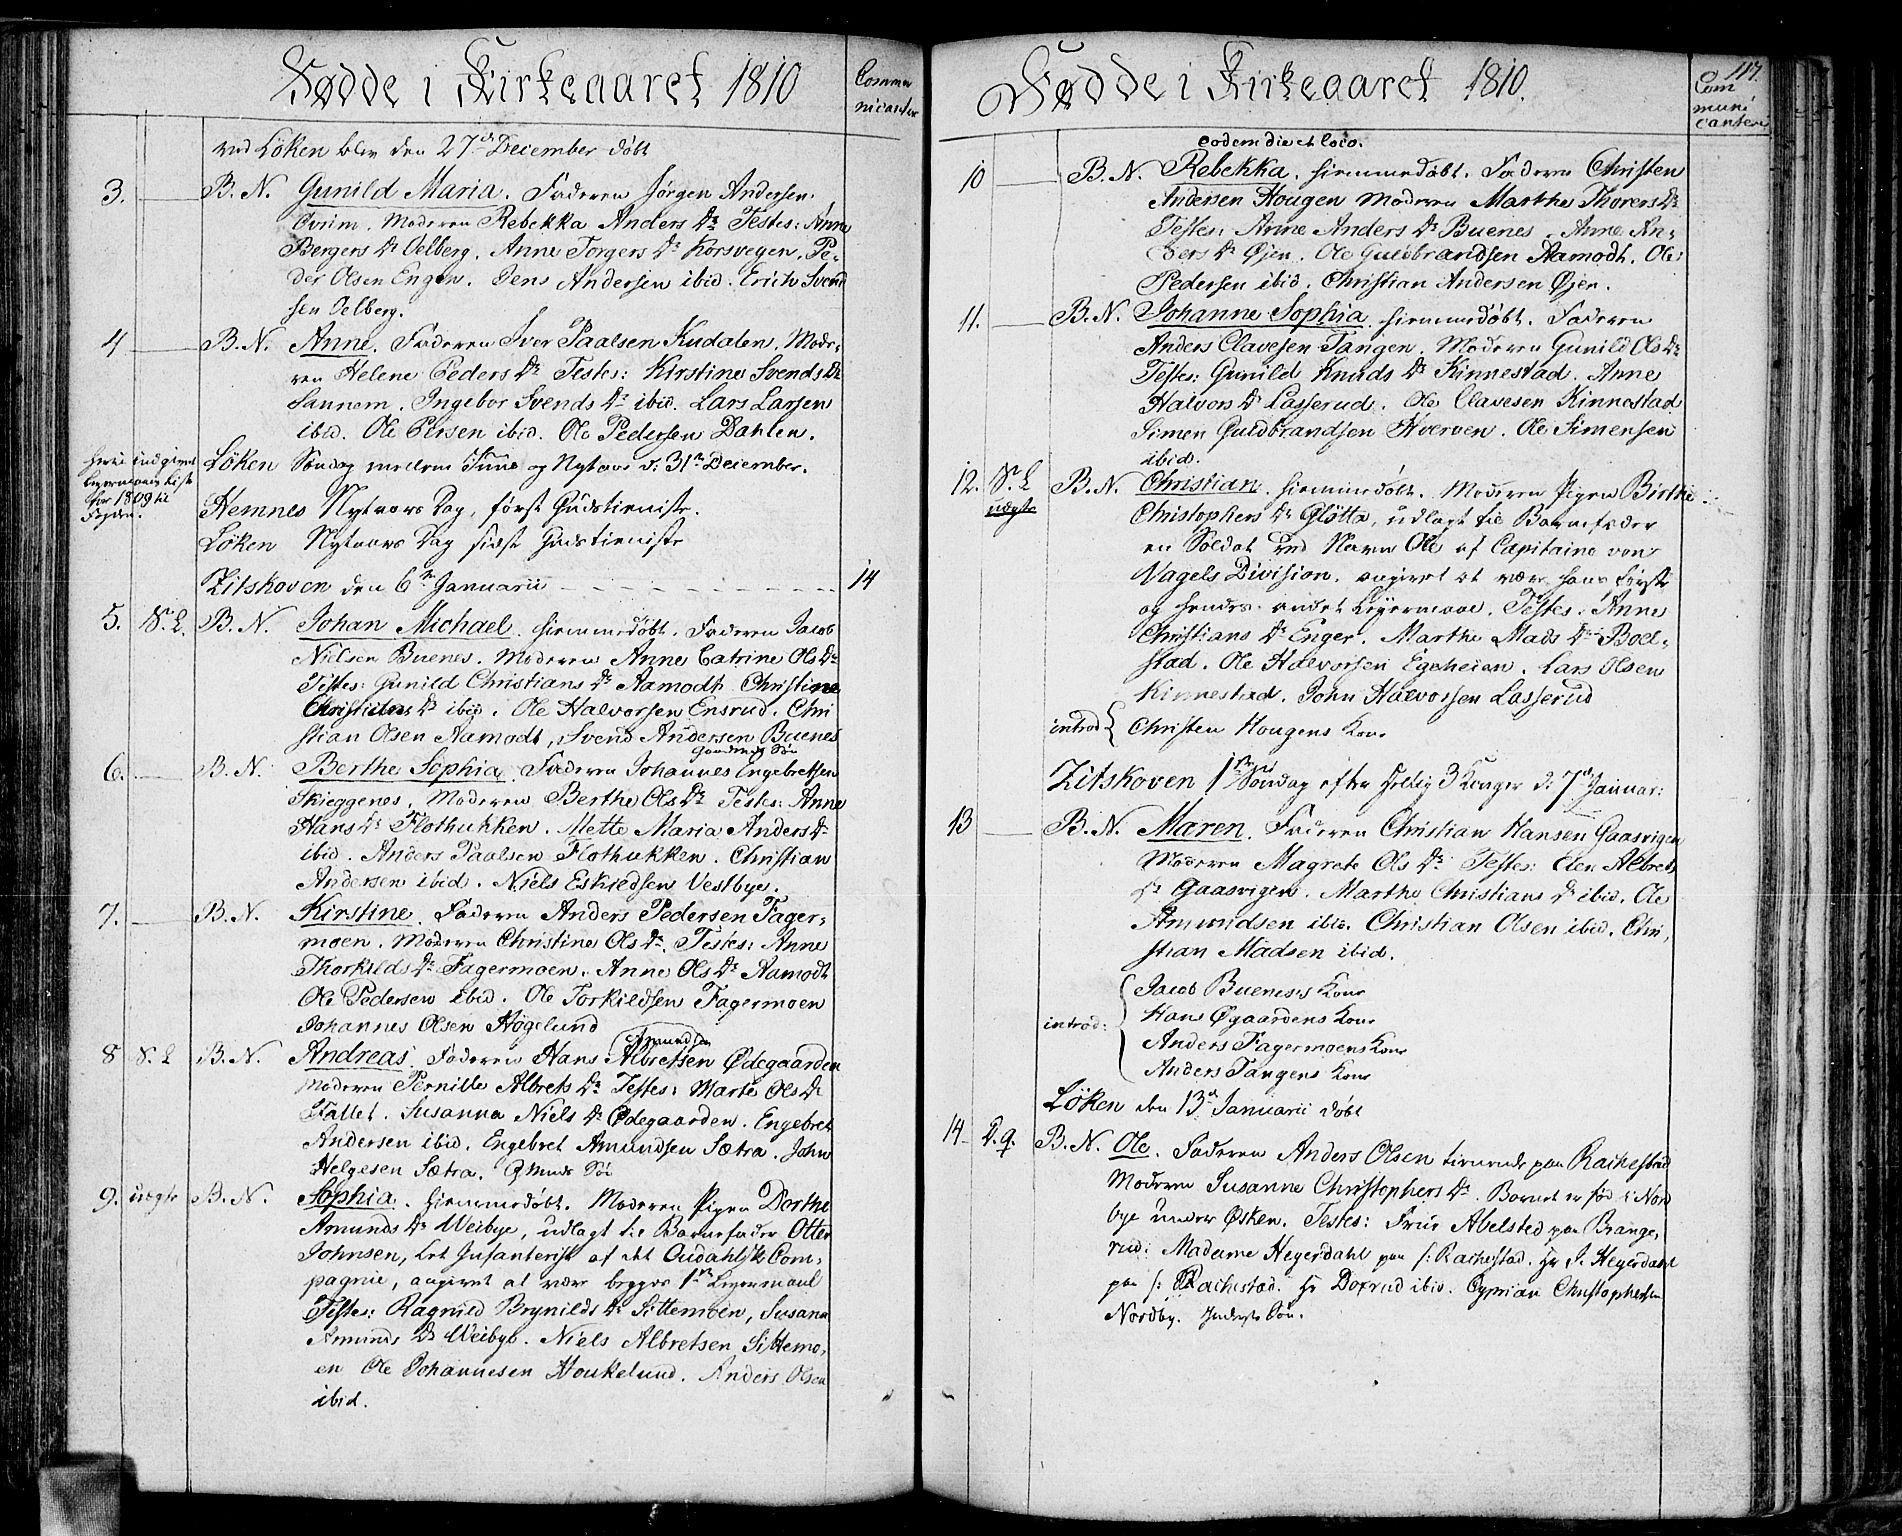 Fødde i Kirkeaaret 1810
Commu
nicanter
ved Löken blev den 27de December døbt
3. B. N. Gunild Maria. Faderen Jörgen Andersen
Moderen Rebekka Anders Dr Testes: Anne
Bergers Dr Oelberg. Anne Torgers Dr Korsvegen. Pe-
der Olsen Engen. Jens Andersen ibid. Erich Svend
sen Oelberg.
4 B. N. Anne. Faderen Iver Paalsen Kudalen. Mode-
ren Helene Peders Dr Testes: Kirstine Svends Dr
Sannem. Ingebor Svends Dr ibid. Lars Larsen
ibid. Ole Persen ibid. Ole Pedersen Dahlen.
Löken Söndag mellem Juul og Nytaar d: 31te December.
herti indgivet
Leyermaals Liste
for 1809 til
Fogden.
Hemnes Nytaars Dag, först Gudstieniste.
Löken Nytaars Dag sidste Gudstieniste
Zitskoven den 6te Januarii 14
5. S. L. B. N. Johan Michael. hiemmedöbt. Faderen Jacob
Nielsen Buenes. Moderen Anne Catrine Ols Dr
Testes: Gunild Christians Dr Aamodt Christine
Christians Dr ibid. Ole Halvorsen Ensrud. Chri
stian Olsen Aamodt, Svend Andersen Buenes
Gaardmands Sön
6. B. N. Berthe Sophia. Faderen Johannes Engebretsen
Skieggenes. Moderen Berthe Ols Dr Testes: Anne
Hans Dr Flothukken. Mette Maria Anders Dr
ibid. Anders Paalsen Flothukken. Christian
Andersen ibid. Niels Eskildsen Vestbye.
7. B. N. Kirstine. Faderen Anders Pedersen Fager-
moen. Moderen Christine Ols Dr. Testes: Anne
Thorkilds Dr Fagermoen. Anne Ols Dr Aamodt
Ole Pedersen ibid. Ole Torkildsen Fagermoen
Johannes Olsen Høgelund
Amundsen
8 S. L B. N. Andreas. Faderen Hans Albretsen Ødegaarden
Moderen Pernille Albrets Dr Testes: Marte Ols Dr
Stallet. Susanna Niels Dr Ødegaarden. Engebret
Andersen ibid. Engebret Amundsen Sætra. John
Helgesen Sætra. Gmds Sön
9. uægte B. N. Sophia. hiemmedöbt. Moderen Pigen Dorthe
Amunds Dr Weibye, udlagt til Barnefader Otter
Johnsen, Let Infanterist af det Oudahlske Com-
pagnie, angivet at være begges 1ste Leyermaal
Testes: Ragnild Brynilds Dr Sittemoen, Susana
Amunds Dr Weibye. Niels Albretsen Sittemo-
en Ole Johannesen Houkelund. Anders Olsen
ibid.
Fødde i Kirkeaaret 1810.
117.
Com
muni
canter
eodem die et loco.
10 B. N. Rebekka. hiemmedöbt. Faderen Christen
Andersen Hougen Moderen Marthe Thorers Dr
Testes: Anne Anders Dr Buenes. Anne An-
ders Dr Øjen. Ole Guldbrandsen Aamodt. Ole
Pedersen ibid. Christian Andersen Øjen.
11. B. N. Johanne Sophia. hiemmedöbt. Faderen
Anders Clavesen Tangen. Moderen Gunild Ols Dr
Testes: Gunild Knuds Dr Kinnestad. Anne
Halvors Dr Lasserud. Ole Clavesen Kinnestad
Simen Guldbrandsen Hverven. Ole Simensen
ibid.
12. S. L uægte B. N. Christian. hiemmedöbt. Moderen Pigen Birthe
Christophers Dr Glötta, udlagt til Barnefader
en Soldat ved Navn Ole af Capitaine von
Nagels Division. angivet at være hans første
og hendes andet Leyermaal. Testes: Anne
Christians Dr Enger. Marthe Mads Dr Boel-
stad. Ole Halvorsen Egeheien. Lars Olsen
Kinnestad. John Halvorsen Lasserud
introd { Christen Hougens Kone
Zitskoven 1ste Söndag efter Hellig 3 Konger d: 7de Januar:
13 B. N. Maren. Faderen Christian Hansen Gaasvigen
Moderen Magrete Ols Dr Testes: Elen Albrets
Dr Gaasvigen. Marthe Christians Dr ibid. Ole
Amundsen ibid. Christian Olsen ibid. Chri
stian Madsen ibid.
introd: { Jacob Bueneses Kone
Hans Øgaardens Kone
Anders Fagermoens Kone
Anders Tangens Kone
Löken den 13de Januarii döbt
14 B. N. Ole. Faderen Anders Olsen tienende paa Rachestad
Moderen Susanne Christophers Dr. Barnet er fød i Nord
bye under Øsken. Testes: Frue Abelsted paa Brange-
rud. Madame Heyerdahl paa s: Rachestad. Hr J. Heyerdahl
paa s: Rachestad. Hr Doxrud ibid. Cyprian Christophersen
Nordby. Inderste Sön.